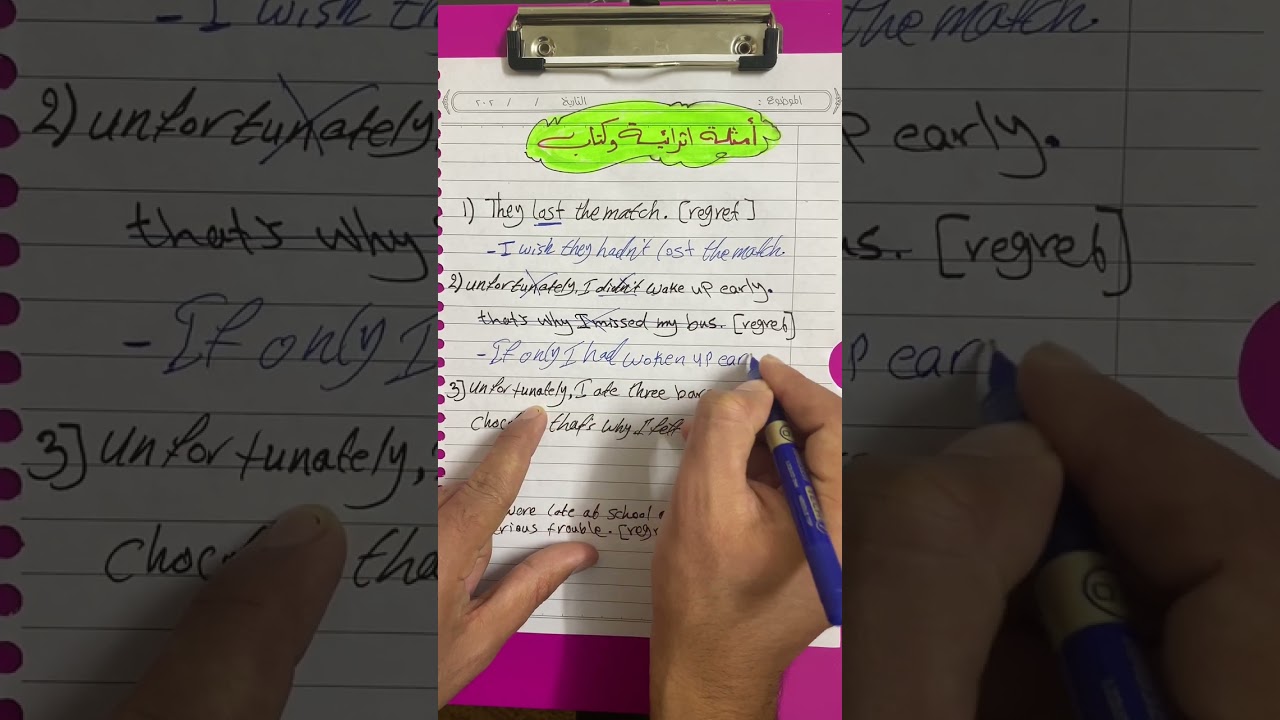 الموضوع : التاريخ / / ٢٠٢
أمثلة اثرائية وكتاب
1) They lost the match. [regret]
- I wish they hadn't lost the match.
2) unfortunately, I didn't wake up early.
that's why I missed my bus. [regret]
- If only I had woken up ear
3] unfortunately, I ate three bar
choc that's why I felt
were late at school
erious trouble. [regre